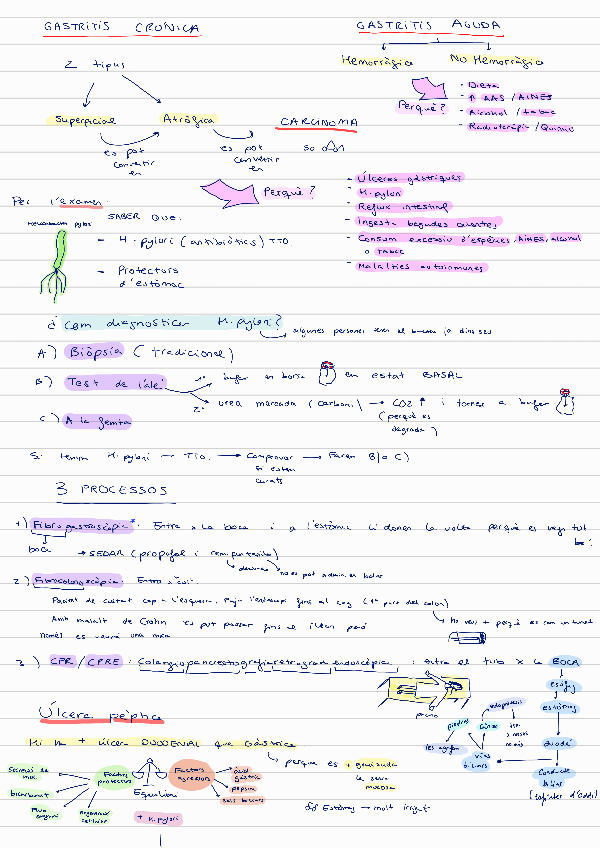 GASTRITIS CRÒNICA
2 tipus
Superficial
Atròfica
es pot convertir en
es pot convertir en
CARCINOMA
GASTRITIS AGUDA
Hemorràgica
No Hemorràgica
Perquè?
- Dieta
- ↑ AAS / AINES
- Alcohol / tabac
- Radioteràpia / Quimio
Perquè?
- Úlceres gàstriques
- H. pylori
- Reflux intestinal
- Ingesta begudes calentes
- Consum excessiu d'espècies, AINES, alcohol
o tabac
- Malalties autoimmunes
Per l'examen:
SABER QUE:
Helicobacter pylori
- H. pylori (antibiòtics) TTO
- Protectors
d'estómac
¿Com diagnosticar H. pylori?
algunes persones tenen el bacteri ja dins seu
A) Biòpsia (tradicional)
B) Test de l'alè
1º bufar en bossa en estat BASAL
2º urea marcada (carboni) → CO2 ↑ i tornar a bufar
(perquè es
degrada)
C) A la femta
Si tenim H. pylori → TTO. → Comprovar → Farem B) o C)
si estem
curats
3 PROCESSOS
1) Fibrogastroscòpia*: Entra x la boca i a l'estómac li donem la volta perquè es vegi tot
bé!
boca
→ SEDAR (propofol i remifentanilo)
no es pot admin. en bolus
2) Fibrocolonoscòpia: Entra x "cul".
Pacient de costat cap a l'esquerra. Puja l'endoscopi fins al cec (1ª part del colon)
Amb malalt de Crohn es pot passar fins el íleon però
només es veurà una mica
No veus + perquè és com un túnel
3) CPR / CPRE: Colangiopancreatografia retrograda endoscòpica: entra el tub x la BOCA
esòfag
estómac
duodè
Conducte
biliar
(esfínter d'Oddi)
vies
biliars
pedres
les agafem
Úlcera pèptica
Hi ha + úlcera DUODENAL que Gàstrica
perquè es +ganduda
la seva
mucosa
Estómag → molt irrigat
Factors
protectors
Secreció de
moc
bicarbonat
Flux
sanguini
Regeneració
cel·lular
Equilibri
Factors
agressors
àcid
gàstric
pepsina
sals biliars
+ H. pylori